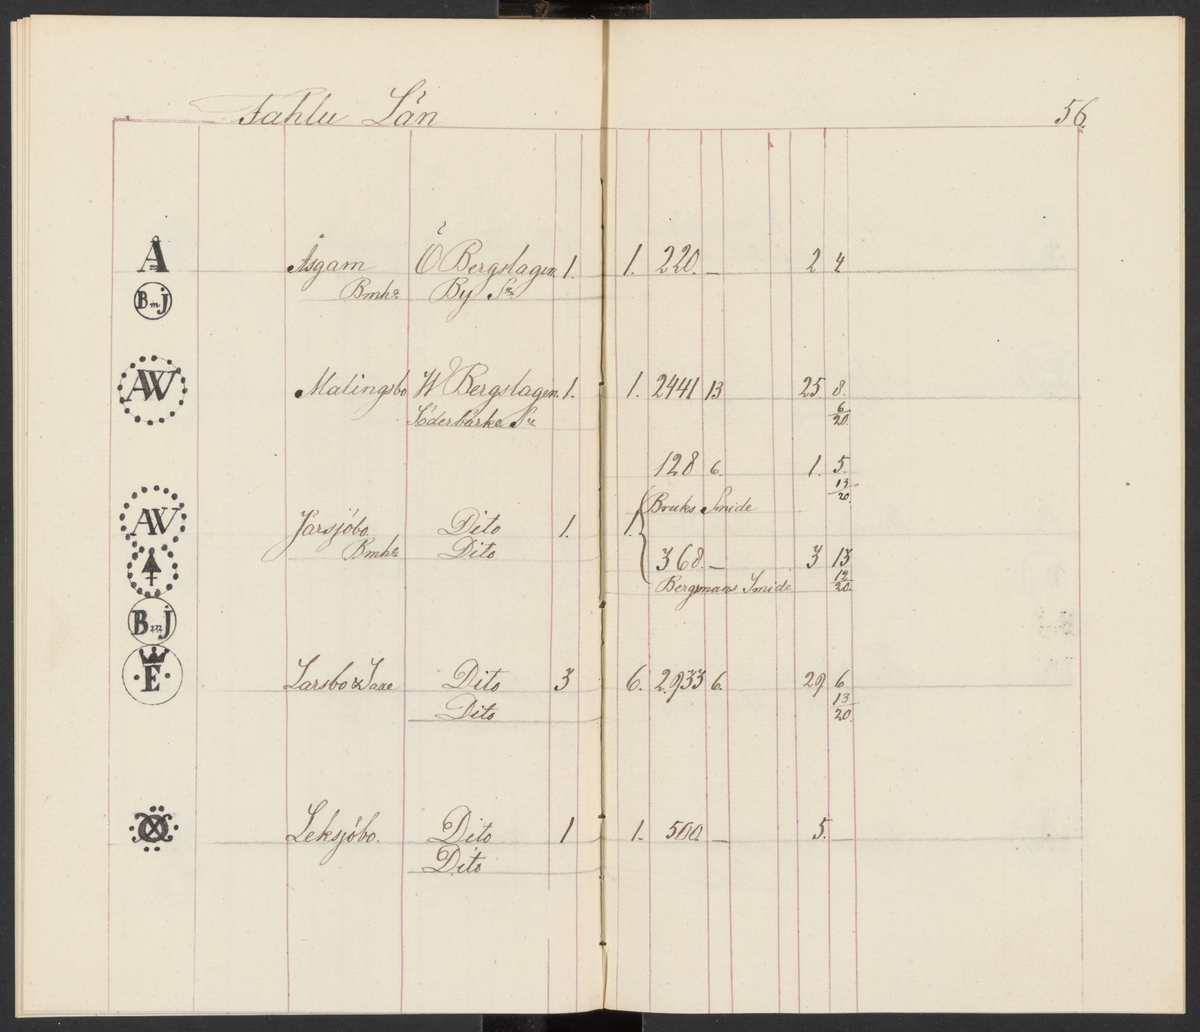 Fahlu Län 56.
Å Åsgarn Ö Bergslagen 1. 1. 220. — 2 4
BmJ Bmhr By Sn
AW Malingsbo W Bergslagen 1. 1. 2441 13 25 8.
Söderbärke Sn 6/20.
128 6. 1. 5.
13/20.
Bruks Smide
AW Jarsjöbo. Dito 1. 1.
Bmhr Dito
368. — 3 13
12/20.
Bergsmans Smide
BmJ
E Larsbo & Saxe Dito 3 6. 2933 6. 29 6
Dito 13/20.
Leksjöbo. Dito 1 1. 500 — 5. —
Dito